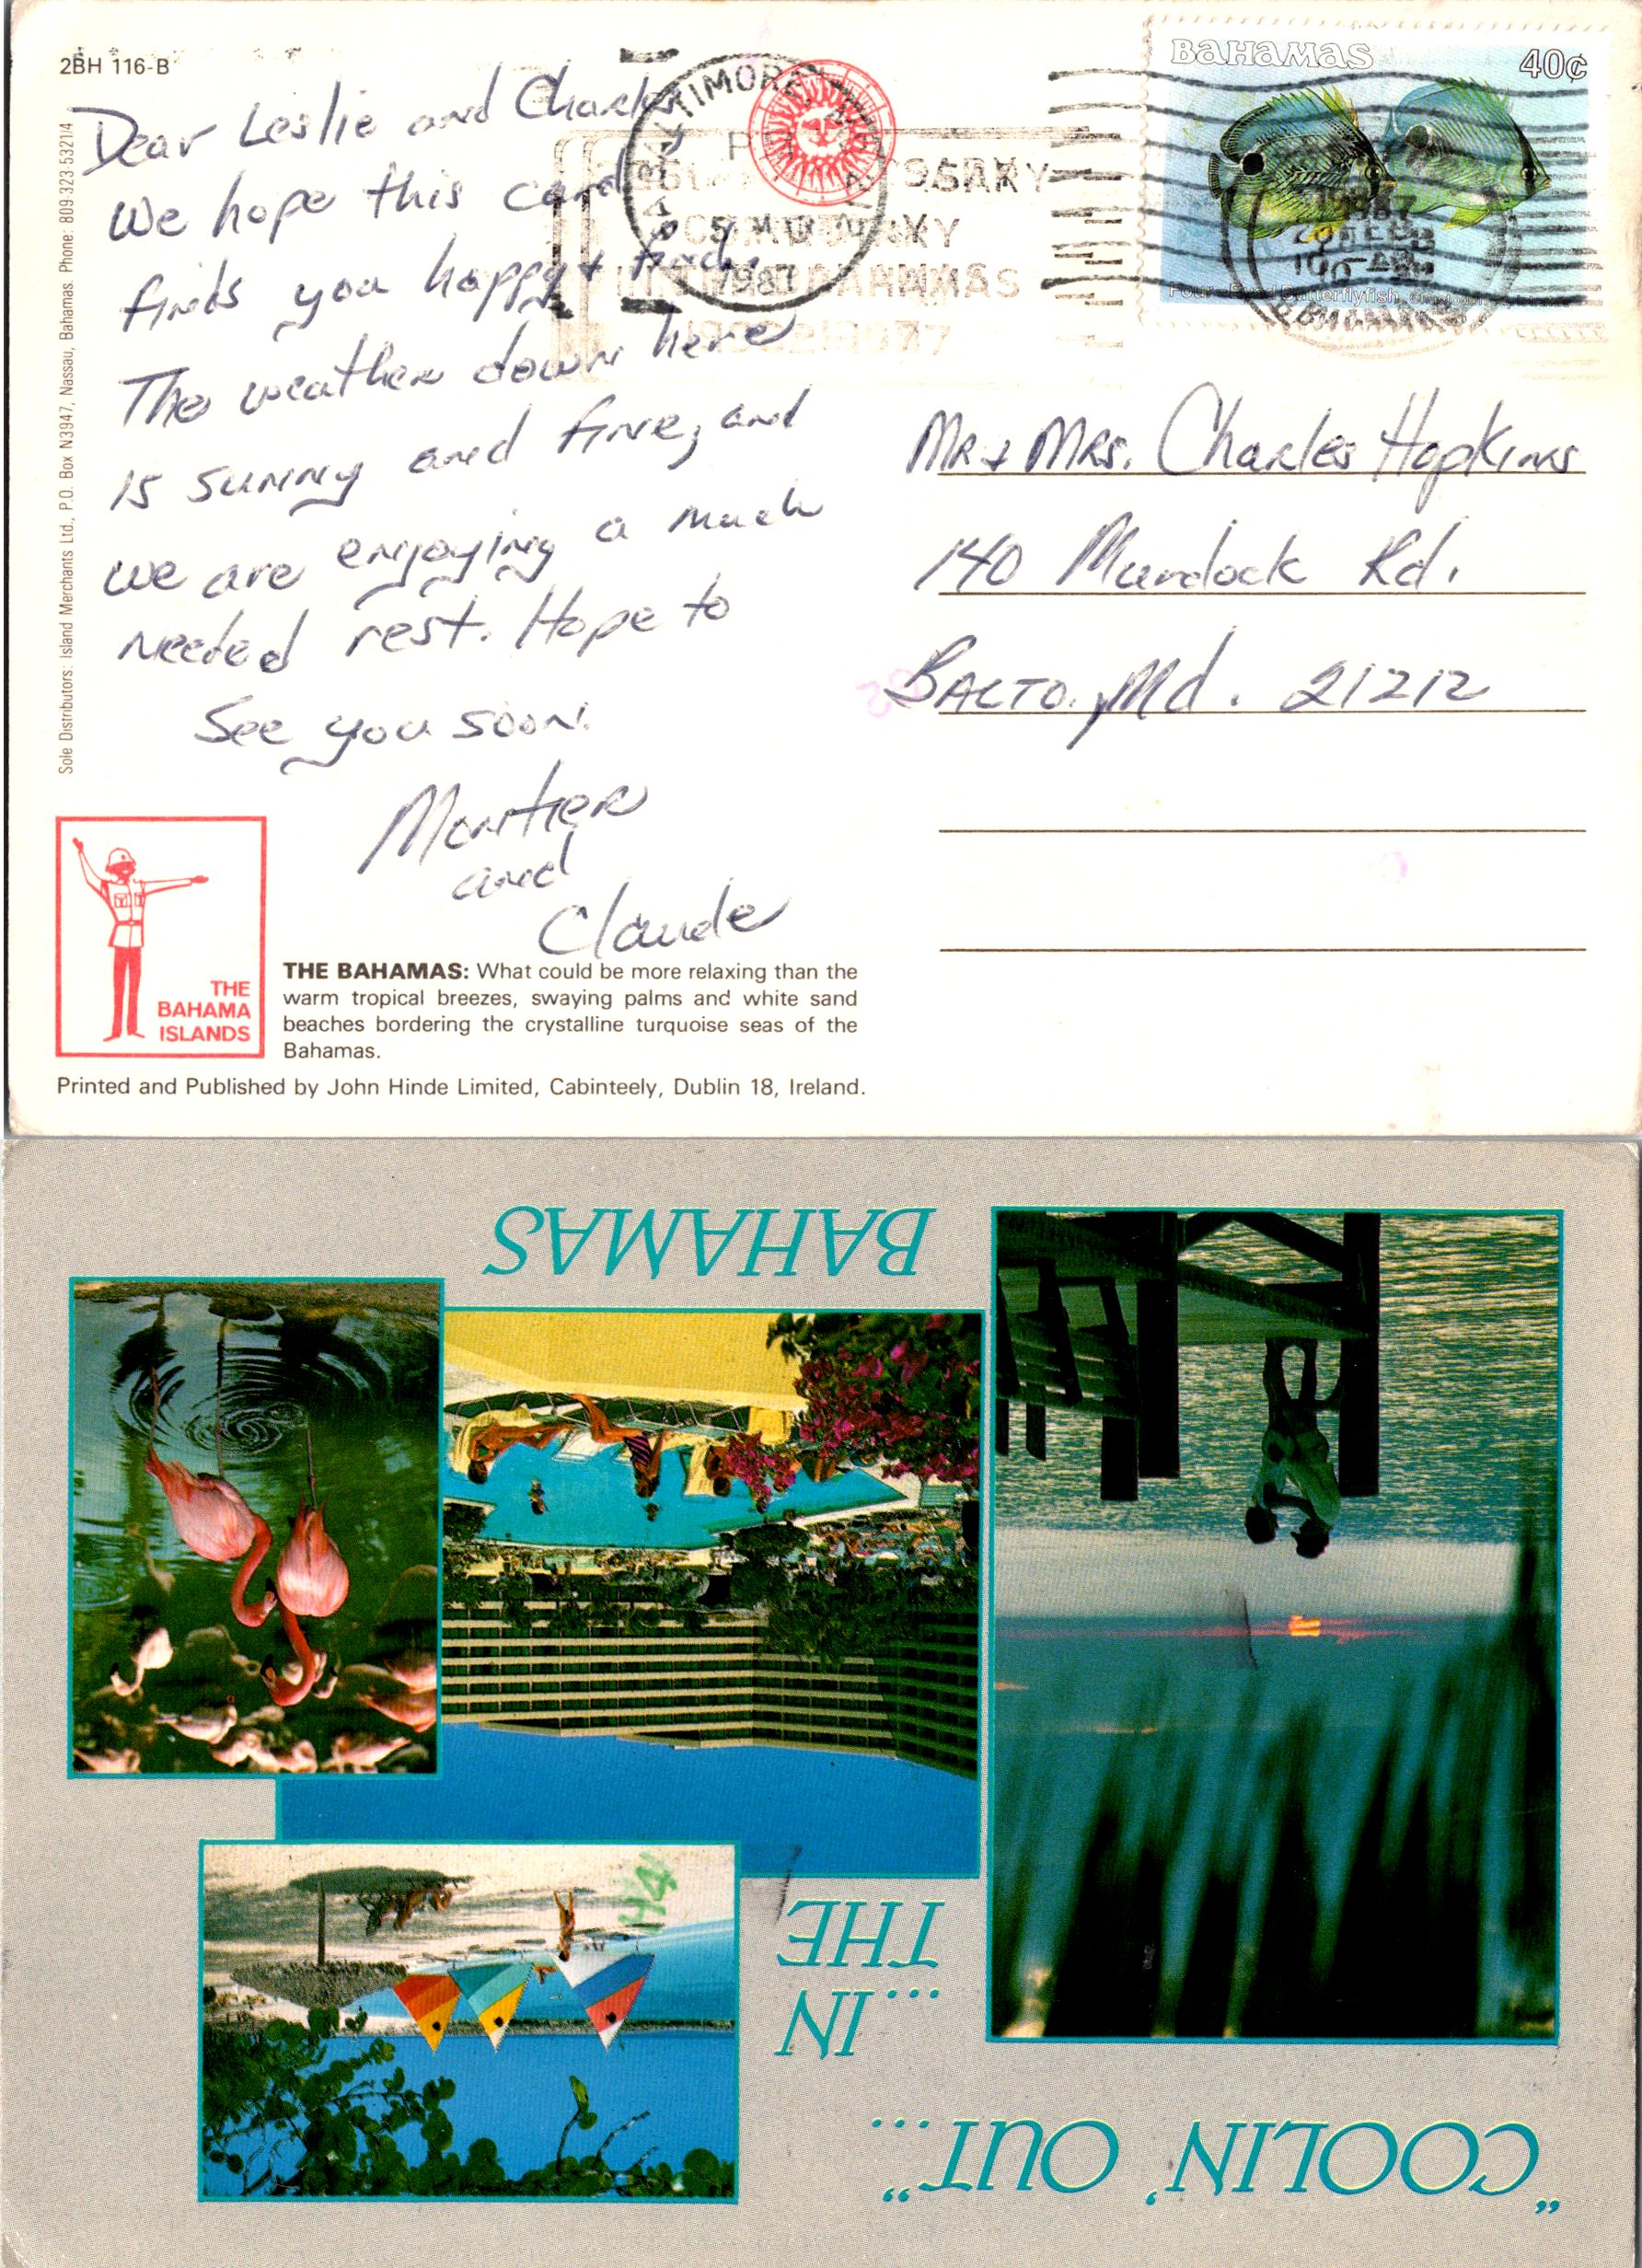 2BH 116-B
Dear Leslie and Charles
We hope this card
finds you happy +
The weather down here
is sunny and fine, and
we are enjoying a much
needed rest. Hope to
See you soon.
and
Claude
Sole Distributors: Island Merchants Ltd., P.O. Box N3947, Nassau, Bahamas. Phone: 809-323-5321/4
THE
BAHAMA
ISLANDS
THE BAHAMAS: What could be more relaxing than the
warm tropical breezes, swaying palms and white sand
beaches bordering the crystalline turquoise seas of the
Bahamas.
Printed and Published by John Hinde Limited, Cabinteely, Dublin 18, Ireland.
BAHAMAS 40¢
Four-Eyed Butterflyfish
BALTIMORE
5 MAR
1987
Mr + Mrs. Charles Hopkins
140 Murdock Rd.
Balto. Md. 21212
"COOLIN' OUT...
...IN
THE
BAHAMAS